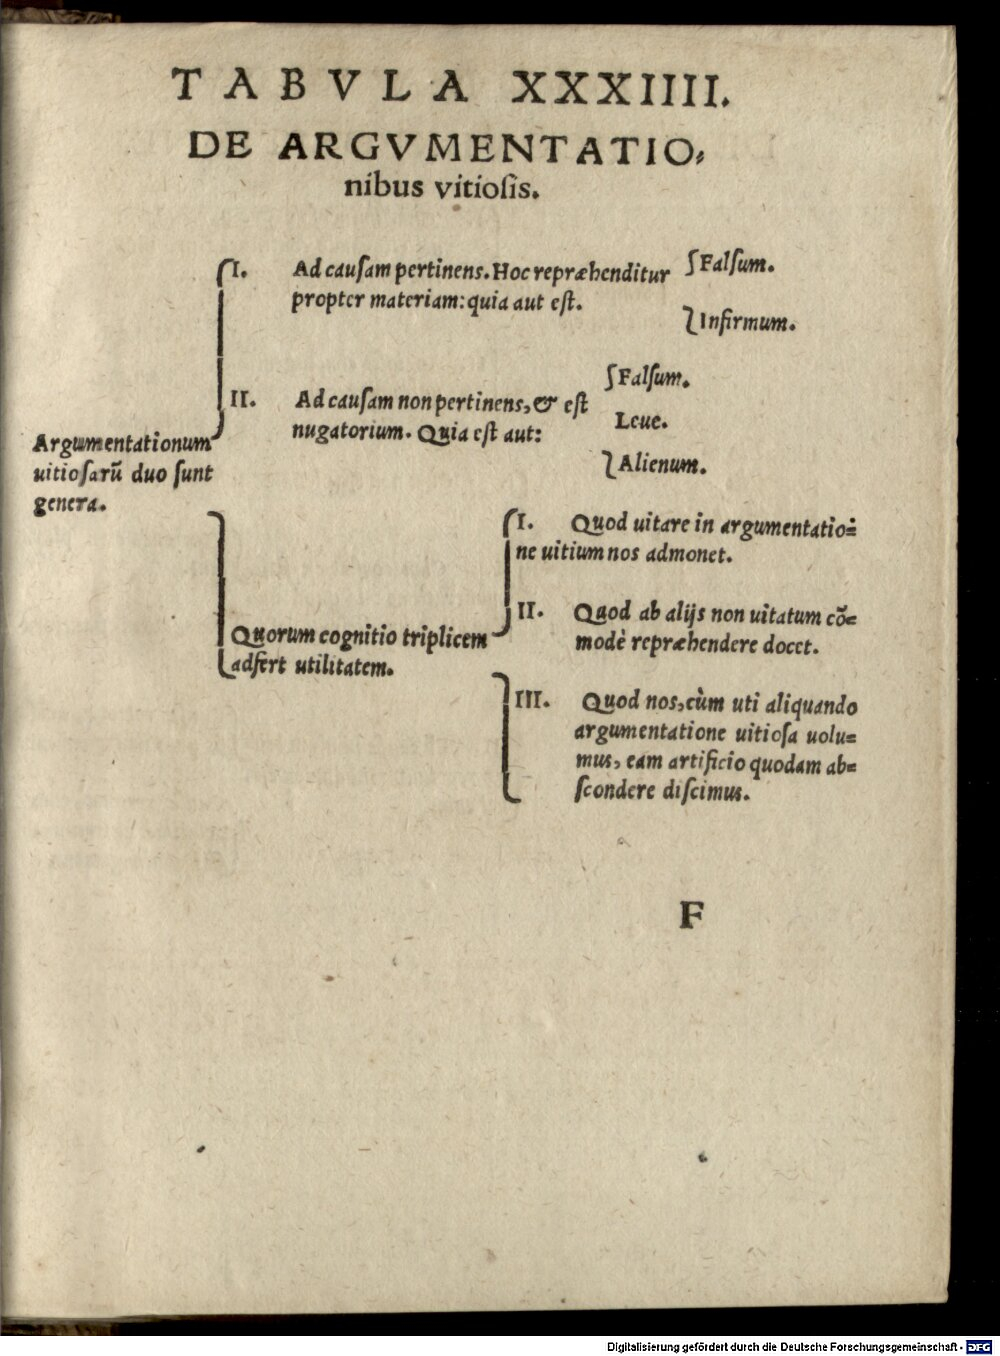 TABVLA XXXIIII.
DE ARGVMENTATIO-
nibus vitiosis.
I. Ad causam pertinens. Hoc repræhenditur
propter materiam: quia aut est.
Falsum.
Infirmum.
II. Ad causam non pertinens, & est
nugatorium. Quia est aut:
Falsum.
Leue.
Alienum.
Argumentationum
uitiosarũ duo sunt
genera.
Quorum cognitio triplicem
adfert utilitatem.
I. Quod uitare in argumentatio=
ne uitium nos admonet.
II. Quod ab alijs non uitatum cõ=
modè repræhendere docet.
III. Quod nos, cùm uti aliquando
argumentatione uitiosa uolu=
mus, eam artificio quodam ab=
scondere discimus.
F
Digitalisierung gefördert durch die Deutsche Forschungsgemeinschaft - DFG